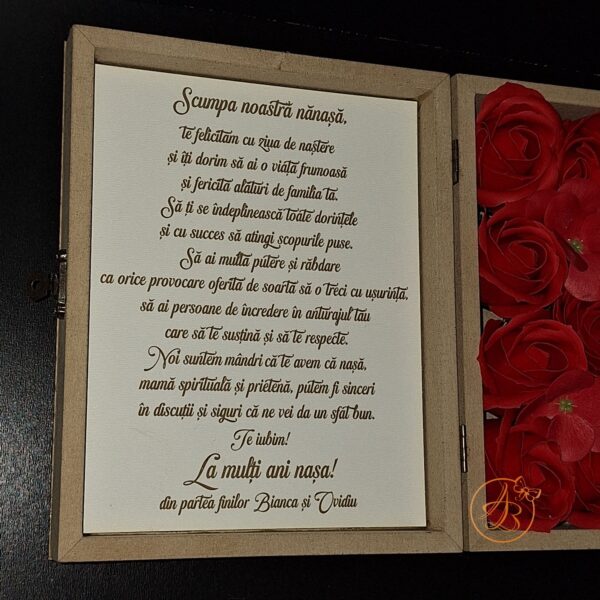 Scumpa noastră nănașă,
te felicităm cu ziua de naștere
și îți dorim să ai o viață frumoasă
și fericită alături de familia ta.
Să ți se îndeplinească toate dorințele
și cu succes să atingi scopurile puse.
Să ai multă putere și răbdare
ca orice provocare oferită de soartă să o treci cu ușurință,
să ai persoane de încredere în anturajul tău
care să te susțină și să te respecte.
Noi suntem mândri că te avem că nașă,
mamă spirituală și prietenă, putem fi sinceri
în discuții și siguri că ne vei da un sfat bun.
Te iubim!
La mulți ani nașa!
din partea finilor Bianca și Ovidiu